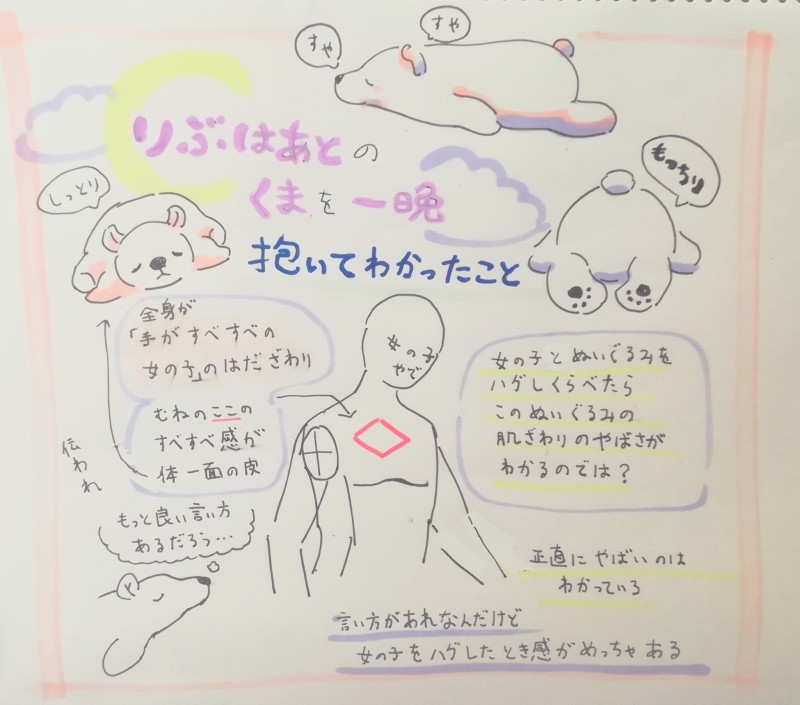 すや
すや
りぶはあとの
くまを一晩
抱いてわかったこと
しっとり
もっちり
全身が
「手がすべすべの
女の子」のはだざわり
むねのここの
すべすべ感が
体一面の皮
伝われ
女の子
やで
女の子とぬいぐるみを
ハグしくらべたら
このぬいぐるみの
肌ざわりのやばさが
わかるのでは?
もっと良い言い方
あるだろう…
正直にやばいのは
わかっている
言い方があれなんだけど
女の子をハグしたとき感がめっちゃある